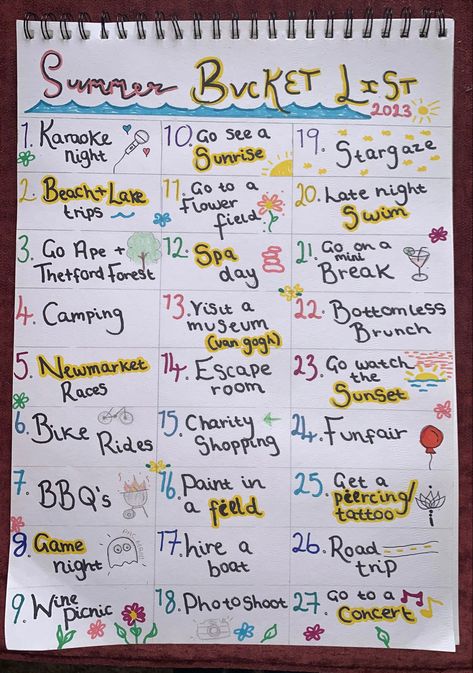 Summer Bucket List
2023
1. Karaoke
night
2. Beach + Lake
trips
3. Go Ape +
Thetford Forest
4. Camping
5. Newmarket
Races
6. Bike
Rides
7. BBQ's
8. Game
night
9. Wine
picnic
10. Go see a
Sunrise
11. Go to a
Flower
field.
12. Spa
day
13. Visit a
museum
(van gogh)
14. Escape
room
15. Charity
Shopping
16. Paint in
a field
17. hire a
boat
18. Photoshoot
19. Stargaze
20. Late night
Swim
21. Go on a
mini
Break
22. Bottomless
Brunch
23. Go watch
the
Sunset
24. Funfair
25. Get a
peercing/
tattoo
26. Road
trip
27. Go to a
Concert